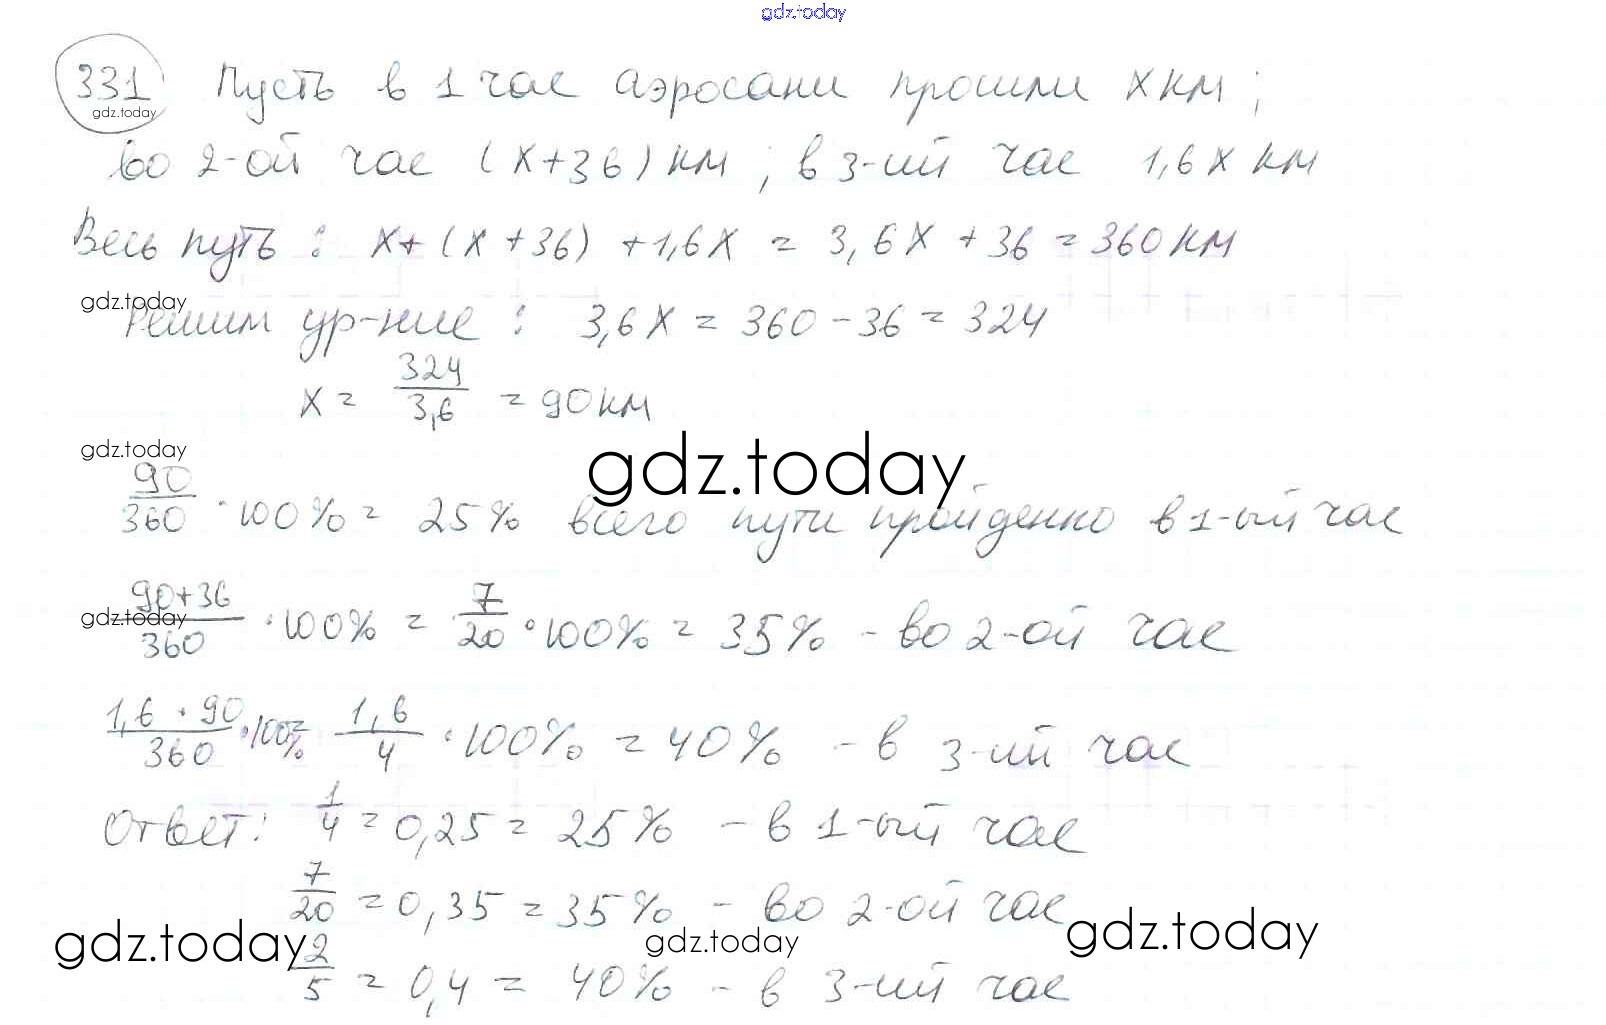 gdz.today
331 Пусть в 1 час аэросани прошли x км;
gdz.today
во 2-ой час (x+36) км; в 3-ий час 1,6x км
Весь путь: x+(x+36)+1,6x = 3,6x+36 = 360 км
gdz.today
Решим ур-ние: 3,6x = 360-36 = 324
x = 324/3,6 = 90 км
gdz.today
gdz.today
90/360 · 100% = 25% всего пути пройденно в 1-ый час
90+36/360 · 100% = 7/20 · 100% = 35% - во 2-ой час
gdz.today
1,6 · 90/360 · 100% = 1,6/4 · 100% = 40% - в 3-ий час
Ответ: 1/4 = 0,25 = 25% - в 1-ый час
7/20 = 0,35 = 35% - во 2-ой час
gdz.today gdz.today gdz.today
2/5 = 0,4 = 40% - в 3-ий час